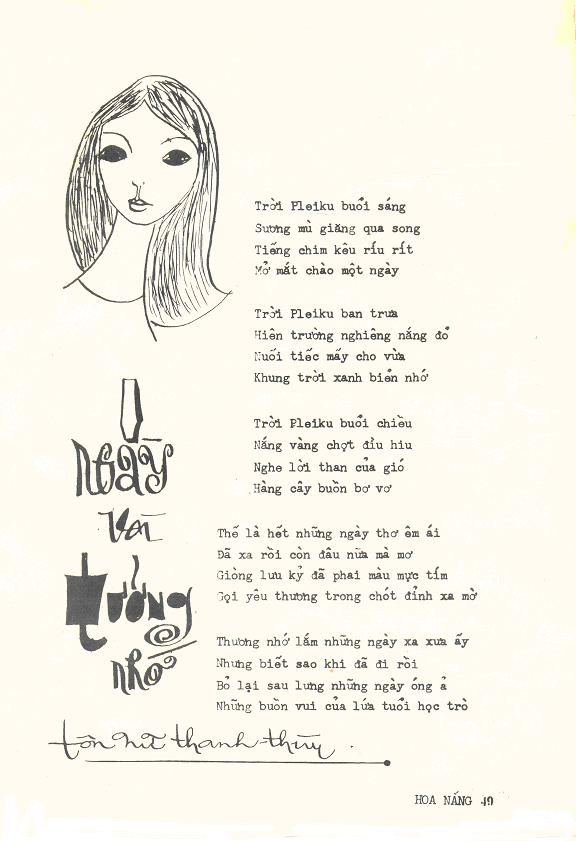 1 ngày và tưởng nhớ
Trời Pleiku buổi sáng
Sương mù giăng qua song
Tiếng chim kêu ríu rít
Mở mắt chào một ngày
Trời Pleiku ban trưa
Hiên trường nghiêng nắng đổ
Nuối tiếc mấy cho vừa
Khung trời xanh biển nhớ
Trời Pleiku buổi chiều
Nắng vàng chợt đìu hiu
Nghe lời than của gió
Hàng cây buồn bơ vơ
Thế là hết những ngày thơ êm ái
Đã xa rồi còn đâu nữa mà mơ
Giòng lưu kỷ đã phai màu mực tím
Gọi yêu thương trong chót đỉnh xa mờ
Thương nhớ lắm những ngày xa xưa ấy
Nhưng biết sao khi đã đi rồi
Bỏ lại sau lưng những ngày óng ả
Những buồn vui của lứa tuổi học trò
tôn nữ thanh-thùy.
HOA NẮNG 49